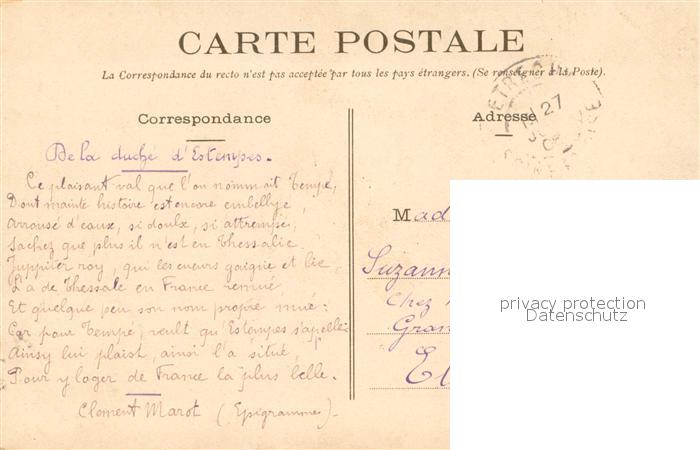 CARTE POSTALE
La Correspondance du recto n'est pas acceptée par tous les pays étrangers. (Se renseigner à la Poste).
Correspondance
De la duché d'Estempes.
Ce plaisant val que l'on nommait Tempé,
Dont mainte histoire est encore embellye,
Arrousé d'eaux, si doulx, si attrempé,
Sachez que plus il n'est en Thessalie.
Juppiter roy, qui les cueurs gaigne et lie,
L'a de Thessale en France remué
Et quelque peu son nom propre mué:
Car pour Tempé veult qu'Estempes s'appelle
Ainsy lui plaist, ainsi l'a situé,
Pour y loger de France la plus belle.
Clement Marot (Epigrammes).
Adresse
27
Mad
Suzann
Chez
Gran
privacy protection
Datenschutz